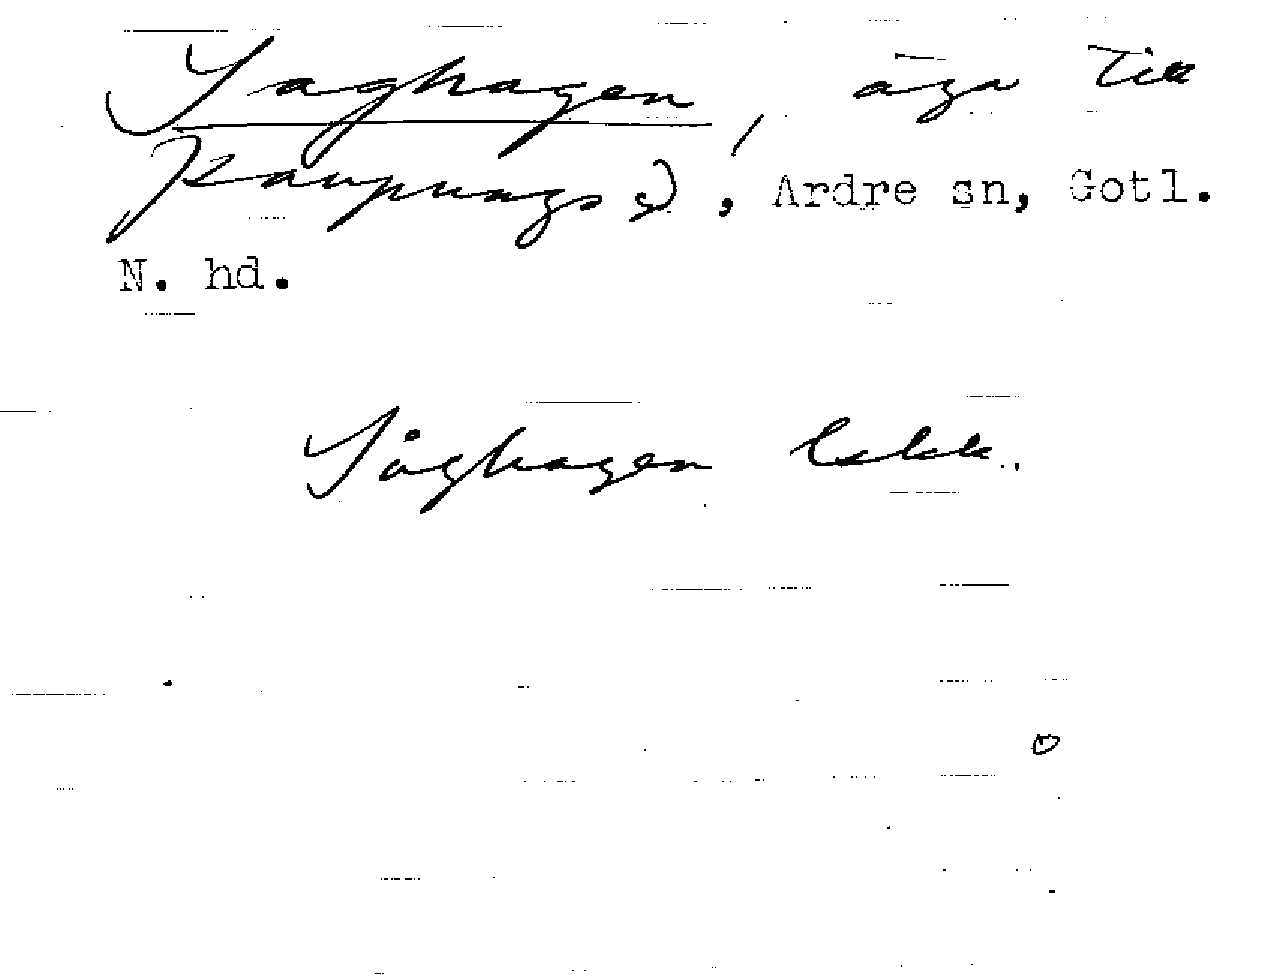 Saghagen, äga till
Kaupungs 2), Ardre sn, Gotl.
N. hd.
Såghagen